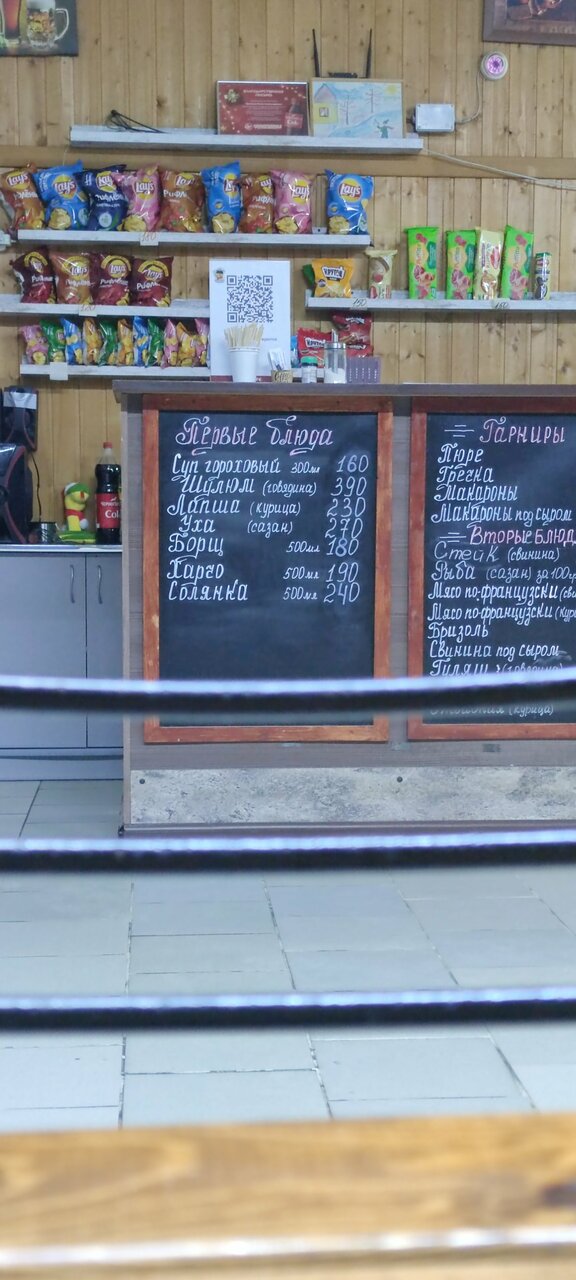 БЛАГОДАРСТВЕННОЕ
ПИСЬМО
Lay's Lay's Lay's Lay's Lay's Lay's Lay's
Рифлёные
Первые блюда
Суп гороховый 300мл 160
Шулюм (говядина) 390
Лапша (курица) 230
Уха (сазан) 270
Борщ 500мл 180
Харчо 500мл 190
Солянка 500мл 240
Гарниры
Пюре
Гречка
Макароны
Макароны под сыром
Вторые блюд
Стейк (свинина)
Рыба (сазан) за 100г
Мясо по-французски (сви
Мясо по-французски (кур
Бризоль
Свинина под сыром
Гуляш (говядина)
(курица)